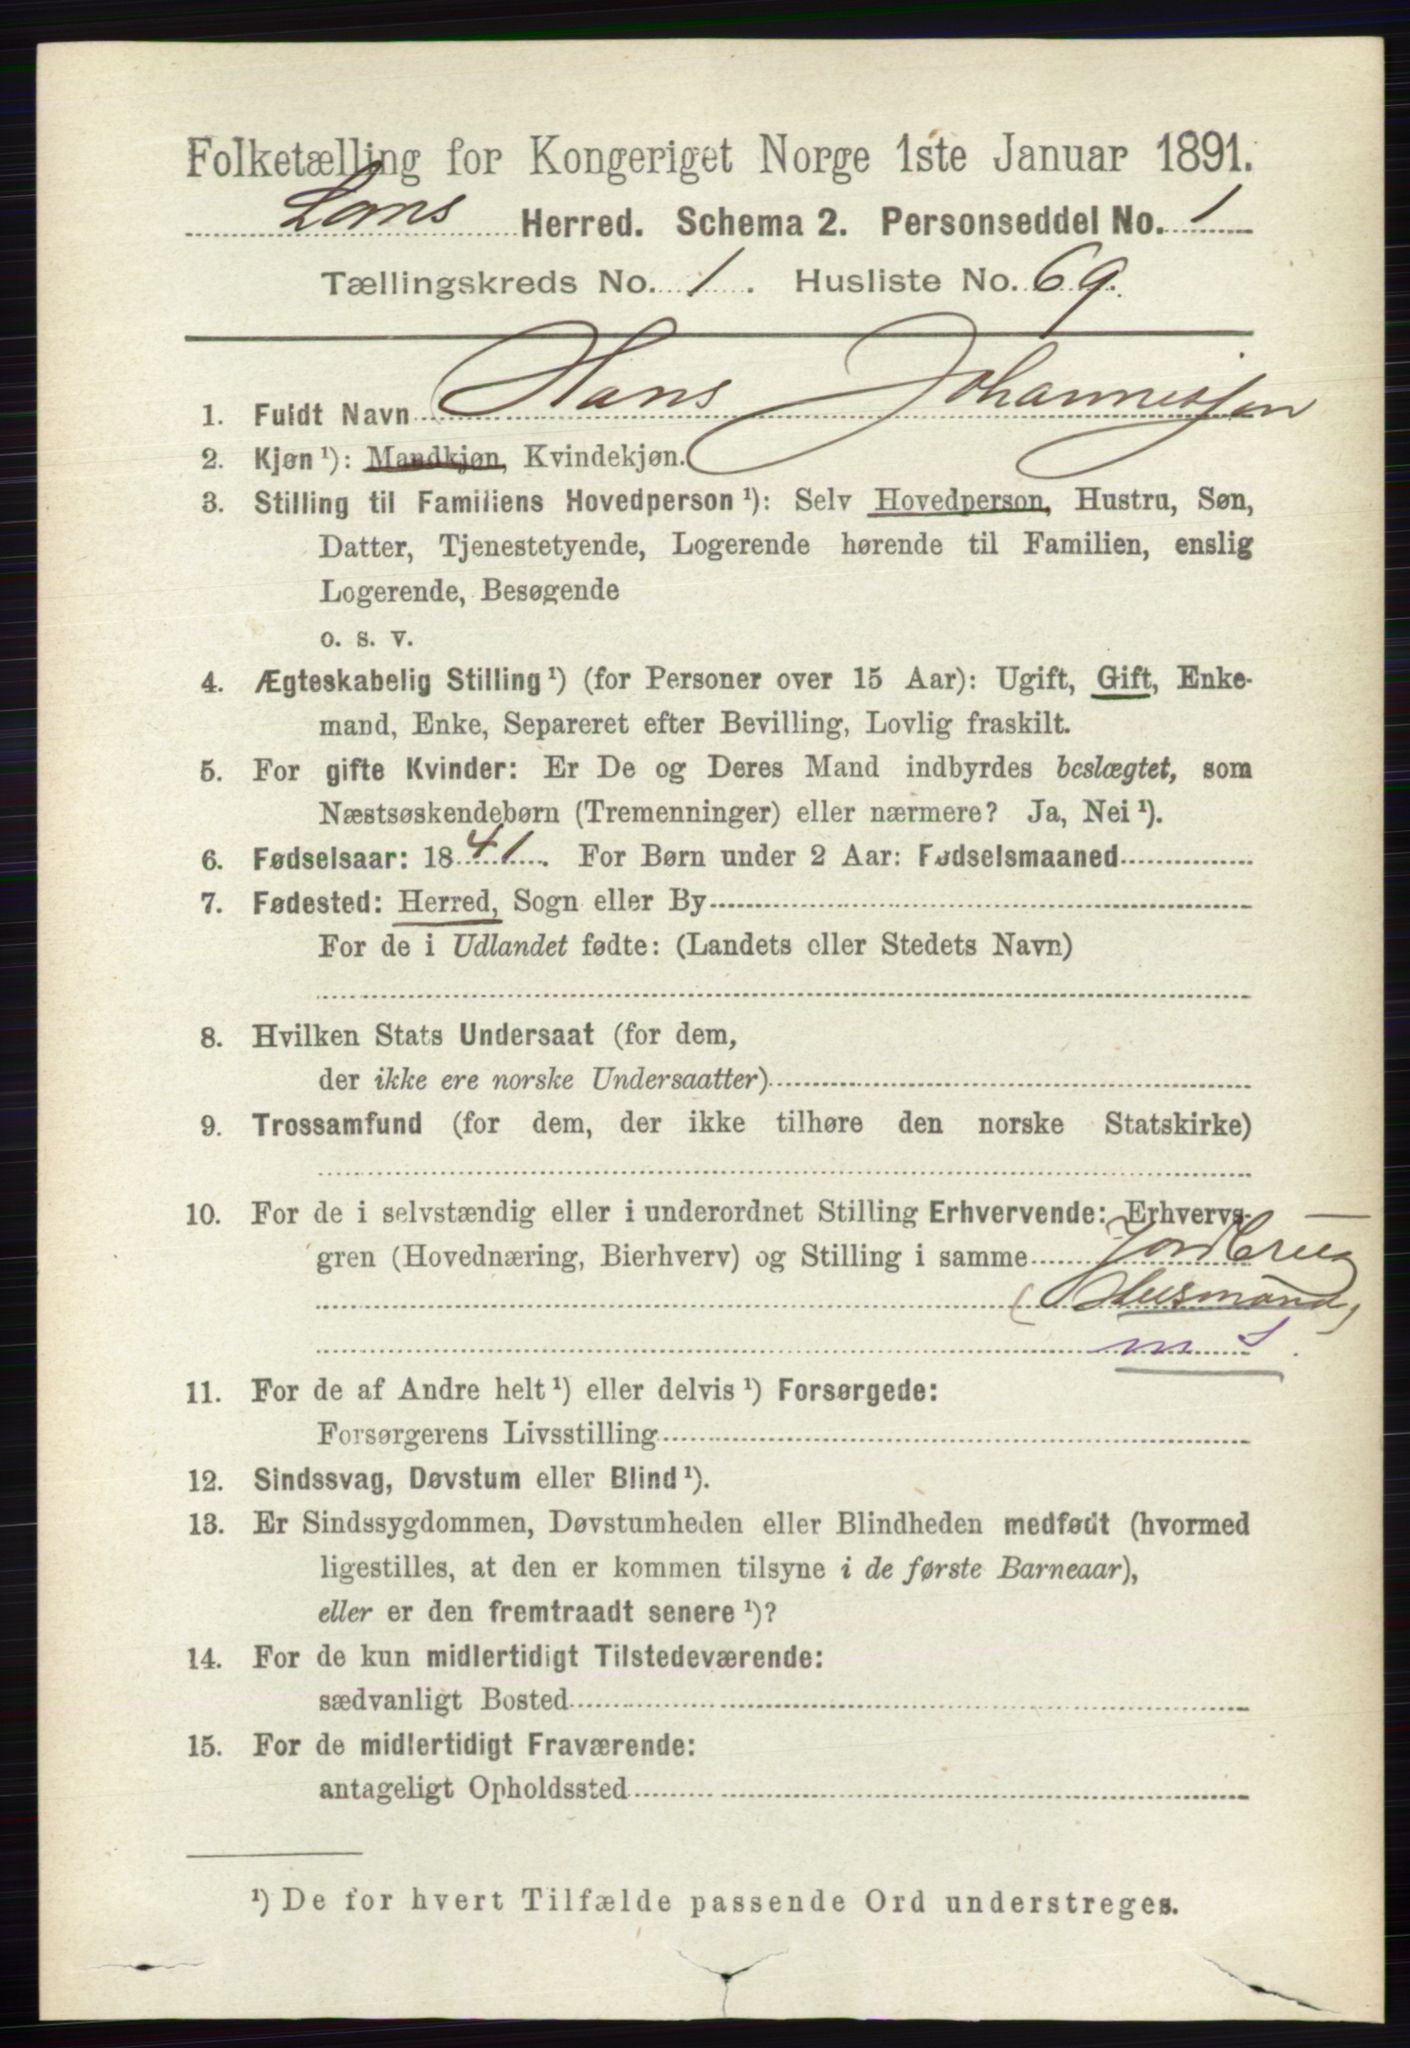 Folketælling for Kongeriget Norge 1ste Januar 1891.
Loms Herred. Schema 2. Personseddel No. 1
Tællingskreds No. 1. Husliste No. 69.
1. Fuldt Navn Hans Johannessen
2. Kjøn¹): Mandkjøn, Kvindekjøn.
3. Stilling til Familiens Hovedperson¹): Selv Hovedperson, Hustru, Søn,
Datter, Tjenestetyende, Logerende hørende til Familien, enslig
Logerende, Besøgende
o. s. v.
4. Ægteskabelig Stilling¹) (for Personer over 15 Aar): Ugift, Gift, Enke-
mand, Enke, Separeret efter Bevilling, Lovlig fraskilt.
5. For gifte Kvinder: Er De og Deres Mand indbyrdes beslægtet, som
Næstsøskendebørn (Tremenninger) eller nærmere? Ja, Nei¹).
6. Fødselsaar: 1841. For Børn under 2 Aar: Fødselsmaaned
7. Fødested: Herred, Sogn eller By
For de i Udlandet fødte: (Landets eller Stedets Navn)
8. Hvilken Stats Undersaat (for dem,
der ikke ere norske Undersaatter)
9. Trossamfund (for dem, der ikke tilhøre den norske Statskirke)
10. For de i selvstændig eller i underordnet Stilling Erhvervende: Erhvervs-
gren (Hovednæring, Bierhverv) og Stilling i samme Jordbrug
(Husmand)
m J.
11. For de af Andre helt¹) eller delvis¹) Forsørgede:
Forsørgerens Livsstilling
12. Sindssvag, Døvstum eller Blind¹).
13. Er Sindssygdommen, Døvstumheden eller Blindheden medfødt (hvormed
ligestilles, at den er kommen tilsyne i de første Barneaar),
eller er den fremtraadt senere¹)?
14. For de kun midlertidigt Tilstedeværende:
sædvanligt Bosted
15. For de midlertidigt Fraværende:
antageligt Opholdssted
¹) De for hvert Tilfælde passende Ord understreges.